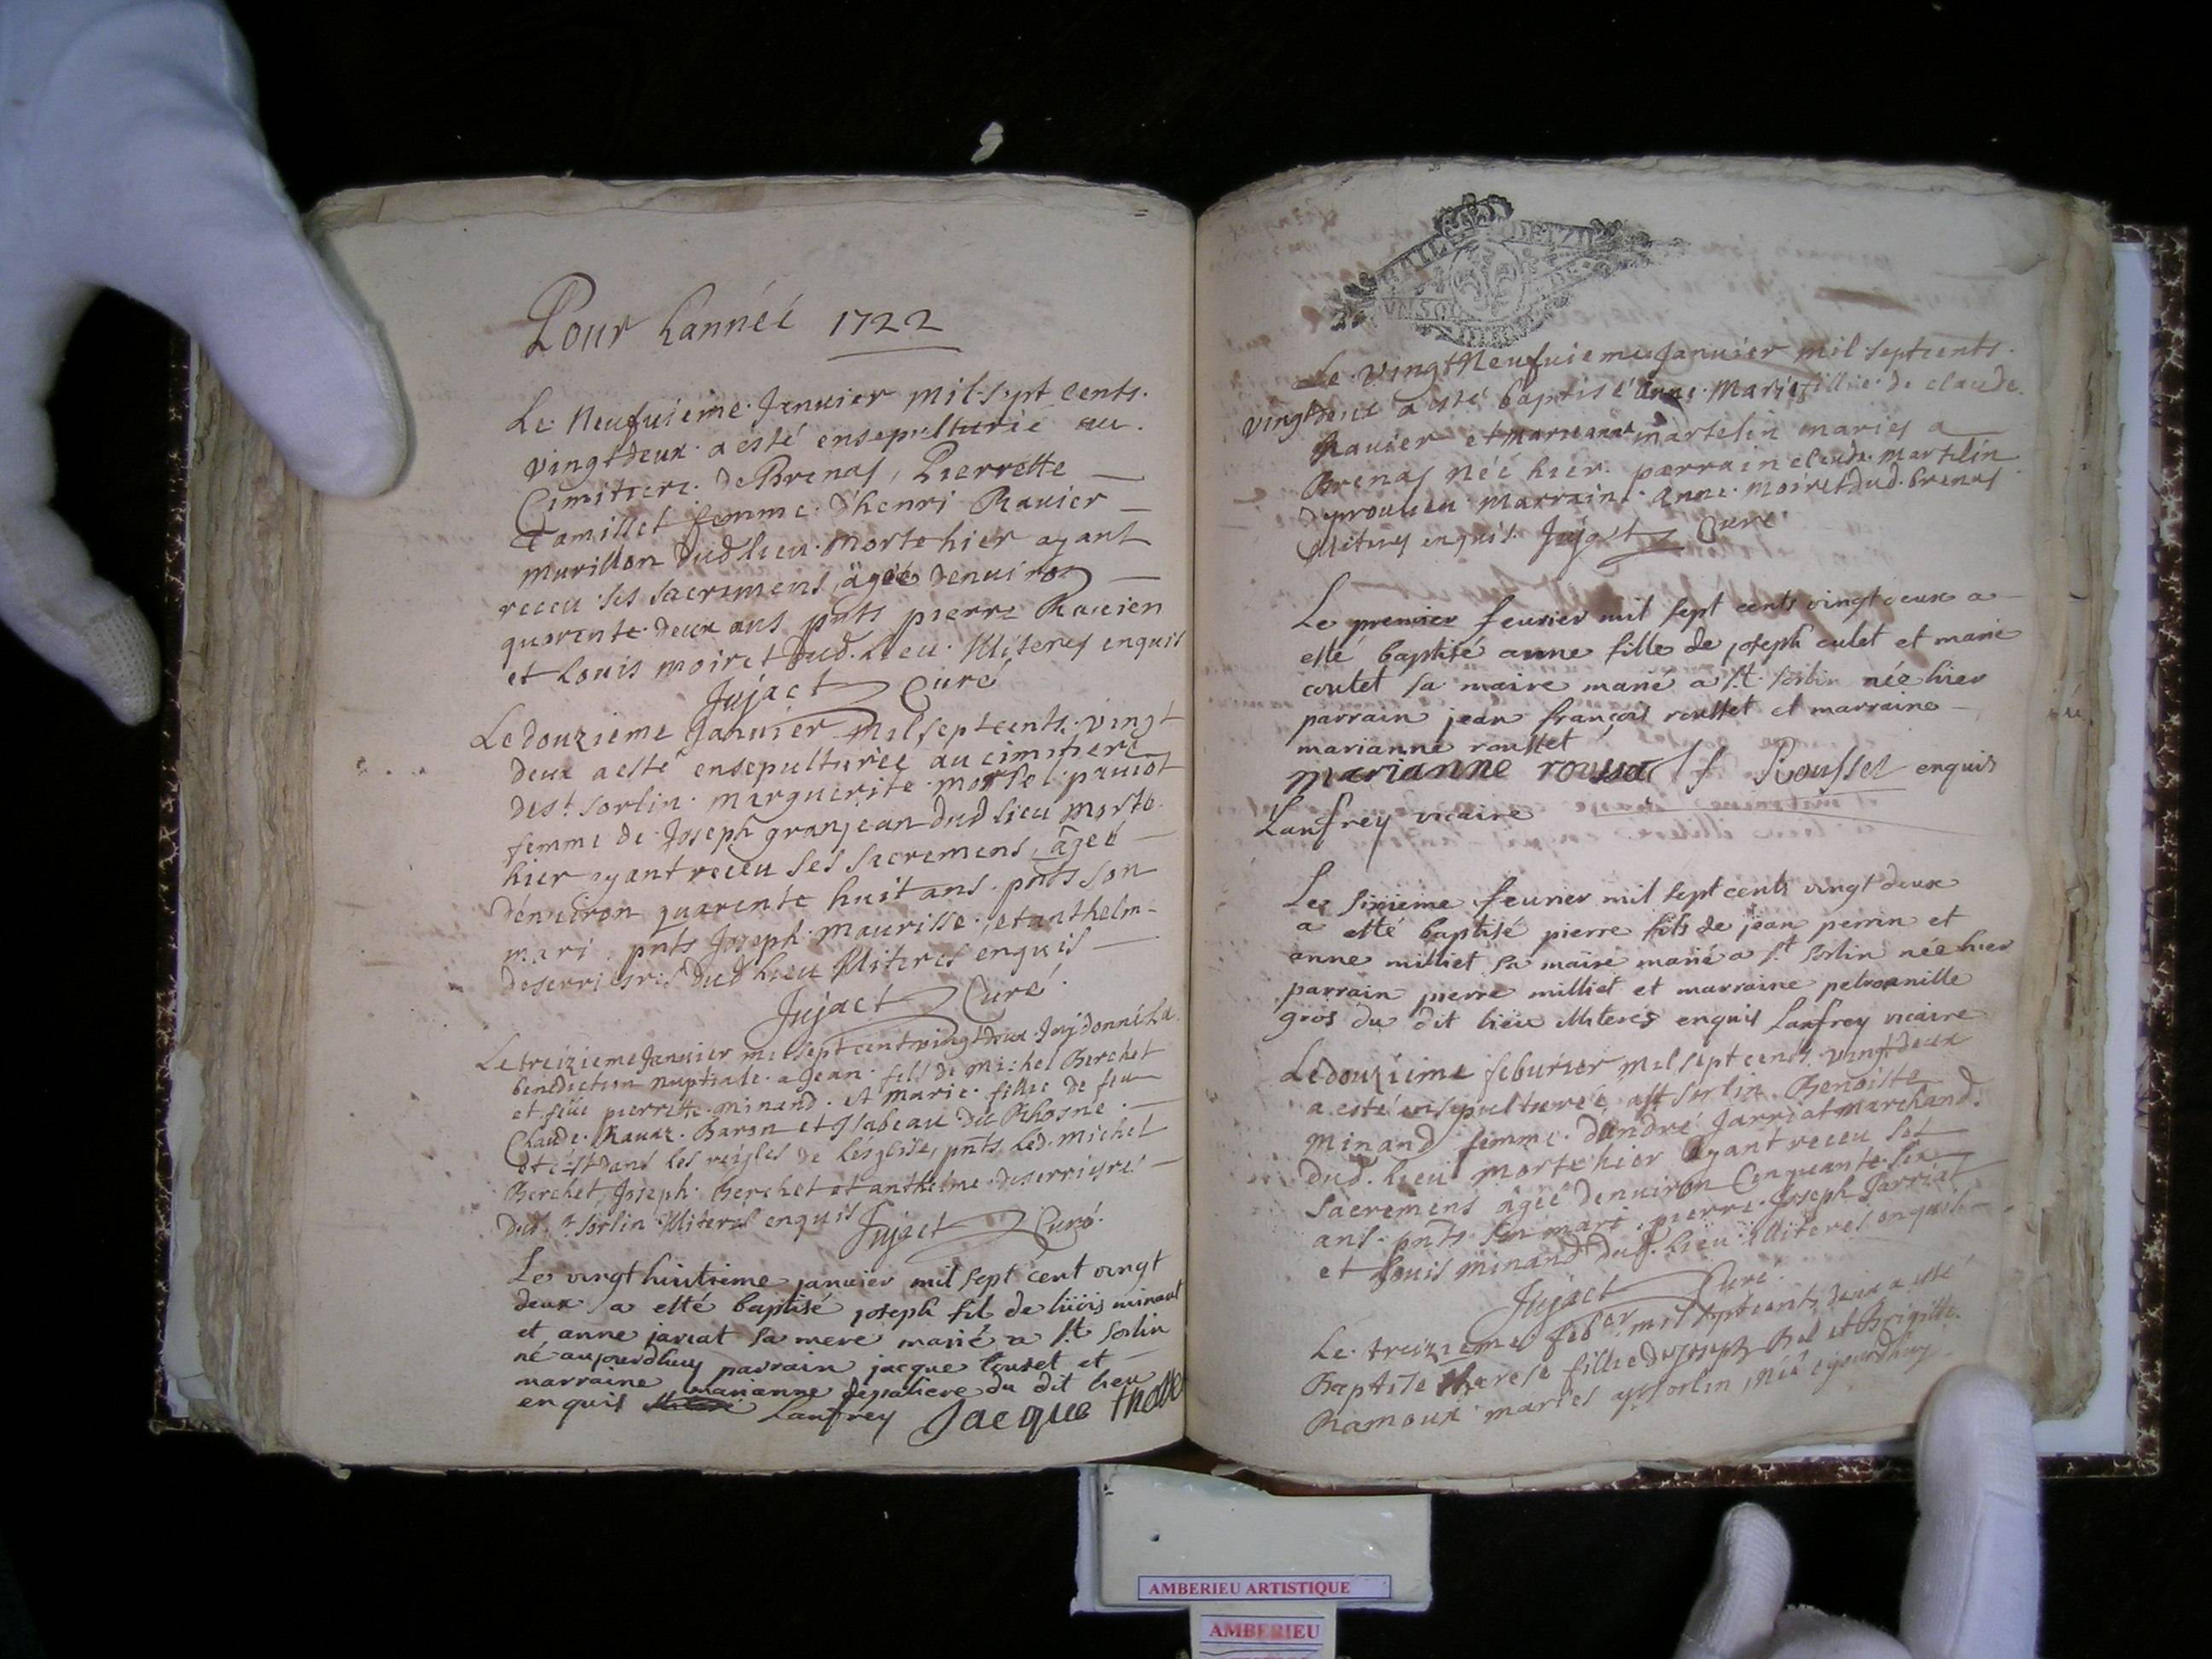 Pour L'année 1722
Le Neufuieme Januier Mil sept cents
vingt deux a esté ensepulturié au
Cimitiere de Brenas, Pierrette
Camillet femme d'henri Rauier
murillon dud lieu morte hier ayant
receu ses sacremens, agée denuiron
quarente deux ans pnts pierre Rauier
et Louis moiret dud. Lieu. Illiteres enquis
Jujact Curé
Le douzieme Januier Mil sept cents vingt
deux a esté ensepulturée au cimitiere
de st. sorlin marguerite
femme de Joseph granjean dud lieu morte
hier ayant receu ses sacremens, âgéé
denuiron quarente huit ans. pnts son
mari pnts Joseph maurisse, et anthelm
deserrieres dud lieu Illiteres enquis
Jujact Curé
Le treizieme Januier mil sept cent vingt deux Jay donné La
benediction nuptiale a Jean fils de Michel Berchet
et feüe pierrette minand et marie fillie de feu
Claude Rauaz Baron et Isabeau du Rhosne
et c'est dans les reigles de l'esglise, pnts led. Michel
Berchet, Joseph Berchet et anthelme deserrieres
dud. st. sorlin Illiteres enquis Jujact Curé
Le vingt huitieme januier mil sept cent vingt
deux a esté baptisé joseph fil de lüois minant
et anne jariat sa mere marié a st. sorlin
né aujourdhuy parrain jacque touret et
marraine marianne du dit lieu
enquis Lanfrey Jacque
Le vingt Neufuieme Januier mil sept cents
vingt deux a esté baptisé Anne Marie fillie de claude
Rauier et marianne martelin mariés a
Brenas née hier parrain claude martelin
marraine Anne Moiret dud. Brenas
Illiteres enquis Jujact Curé
Le premier feurier mil sept cents vingt deux a
esté baptisé anne fille de joseph culet et marie
coutet sa maire marié a st. sorlin née hier
parrain jean françois rousset et marraine
marianne rousset
marianne rousset Rousset enquis
Lanfrey vicaire
Le sixieme feurier mil sept cents vingt deux
a esté baptisé pierre fils de jean perrin et
anne milliet sa maire marié a st sorlin née hier
parrain pierre milliet et marraine petronille
gros du dit lieu Illiteres enquis Lanfrey vicaire
Le douzieme feburier mil sept cents vingt deux
a esté ensepulturée a st sorlin Benoiste
Minand femme d'andré Jarriat marchand
dud. lieu morte hier ayant receu ses
sacremens âgée denuiron Cinquante six
ans. pnts son mari. pierre Joseph Jarriat
et Louis Minand dud. lieu Illiteres enquis
Jujact Curé
Le treizieme feber mil sept cents deux a esté
Baptisé therese fillie de joseph Bel et Brigitte
Ramoux mariés a st sorlin, née ajourdhuy
AMBERIEU ARTISTIQUE
AMBERIEU